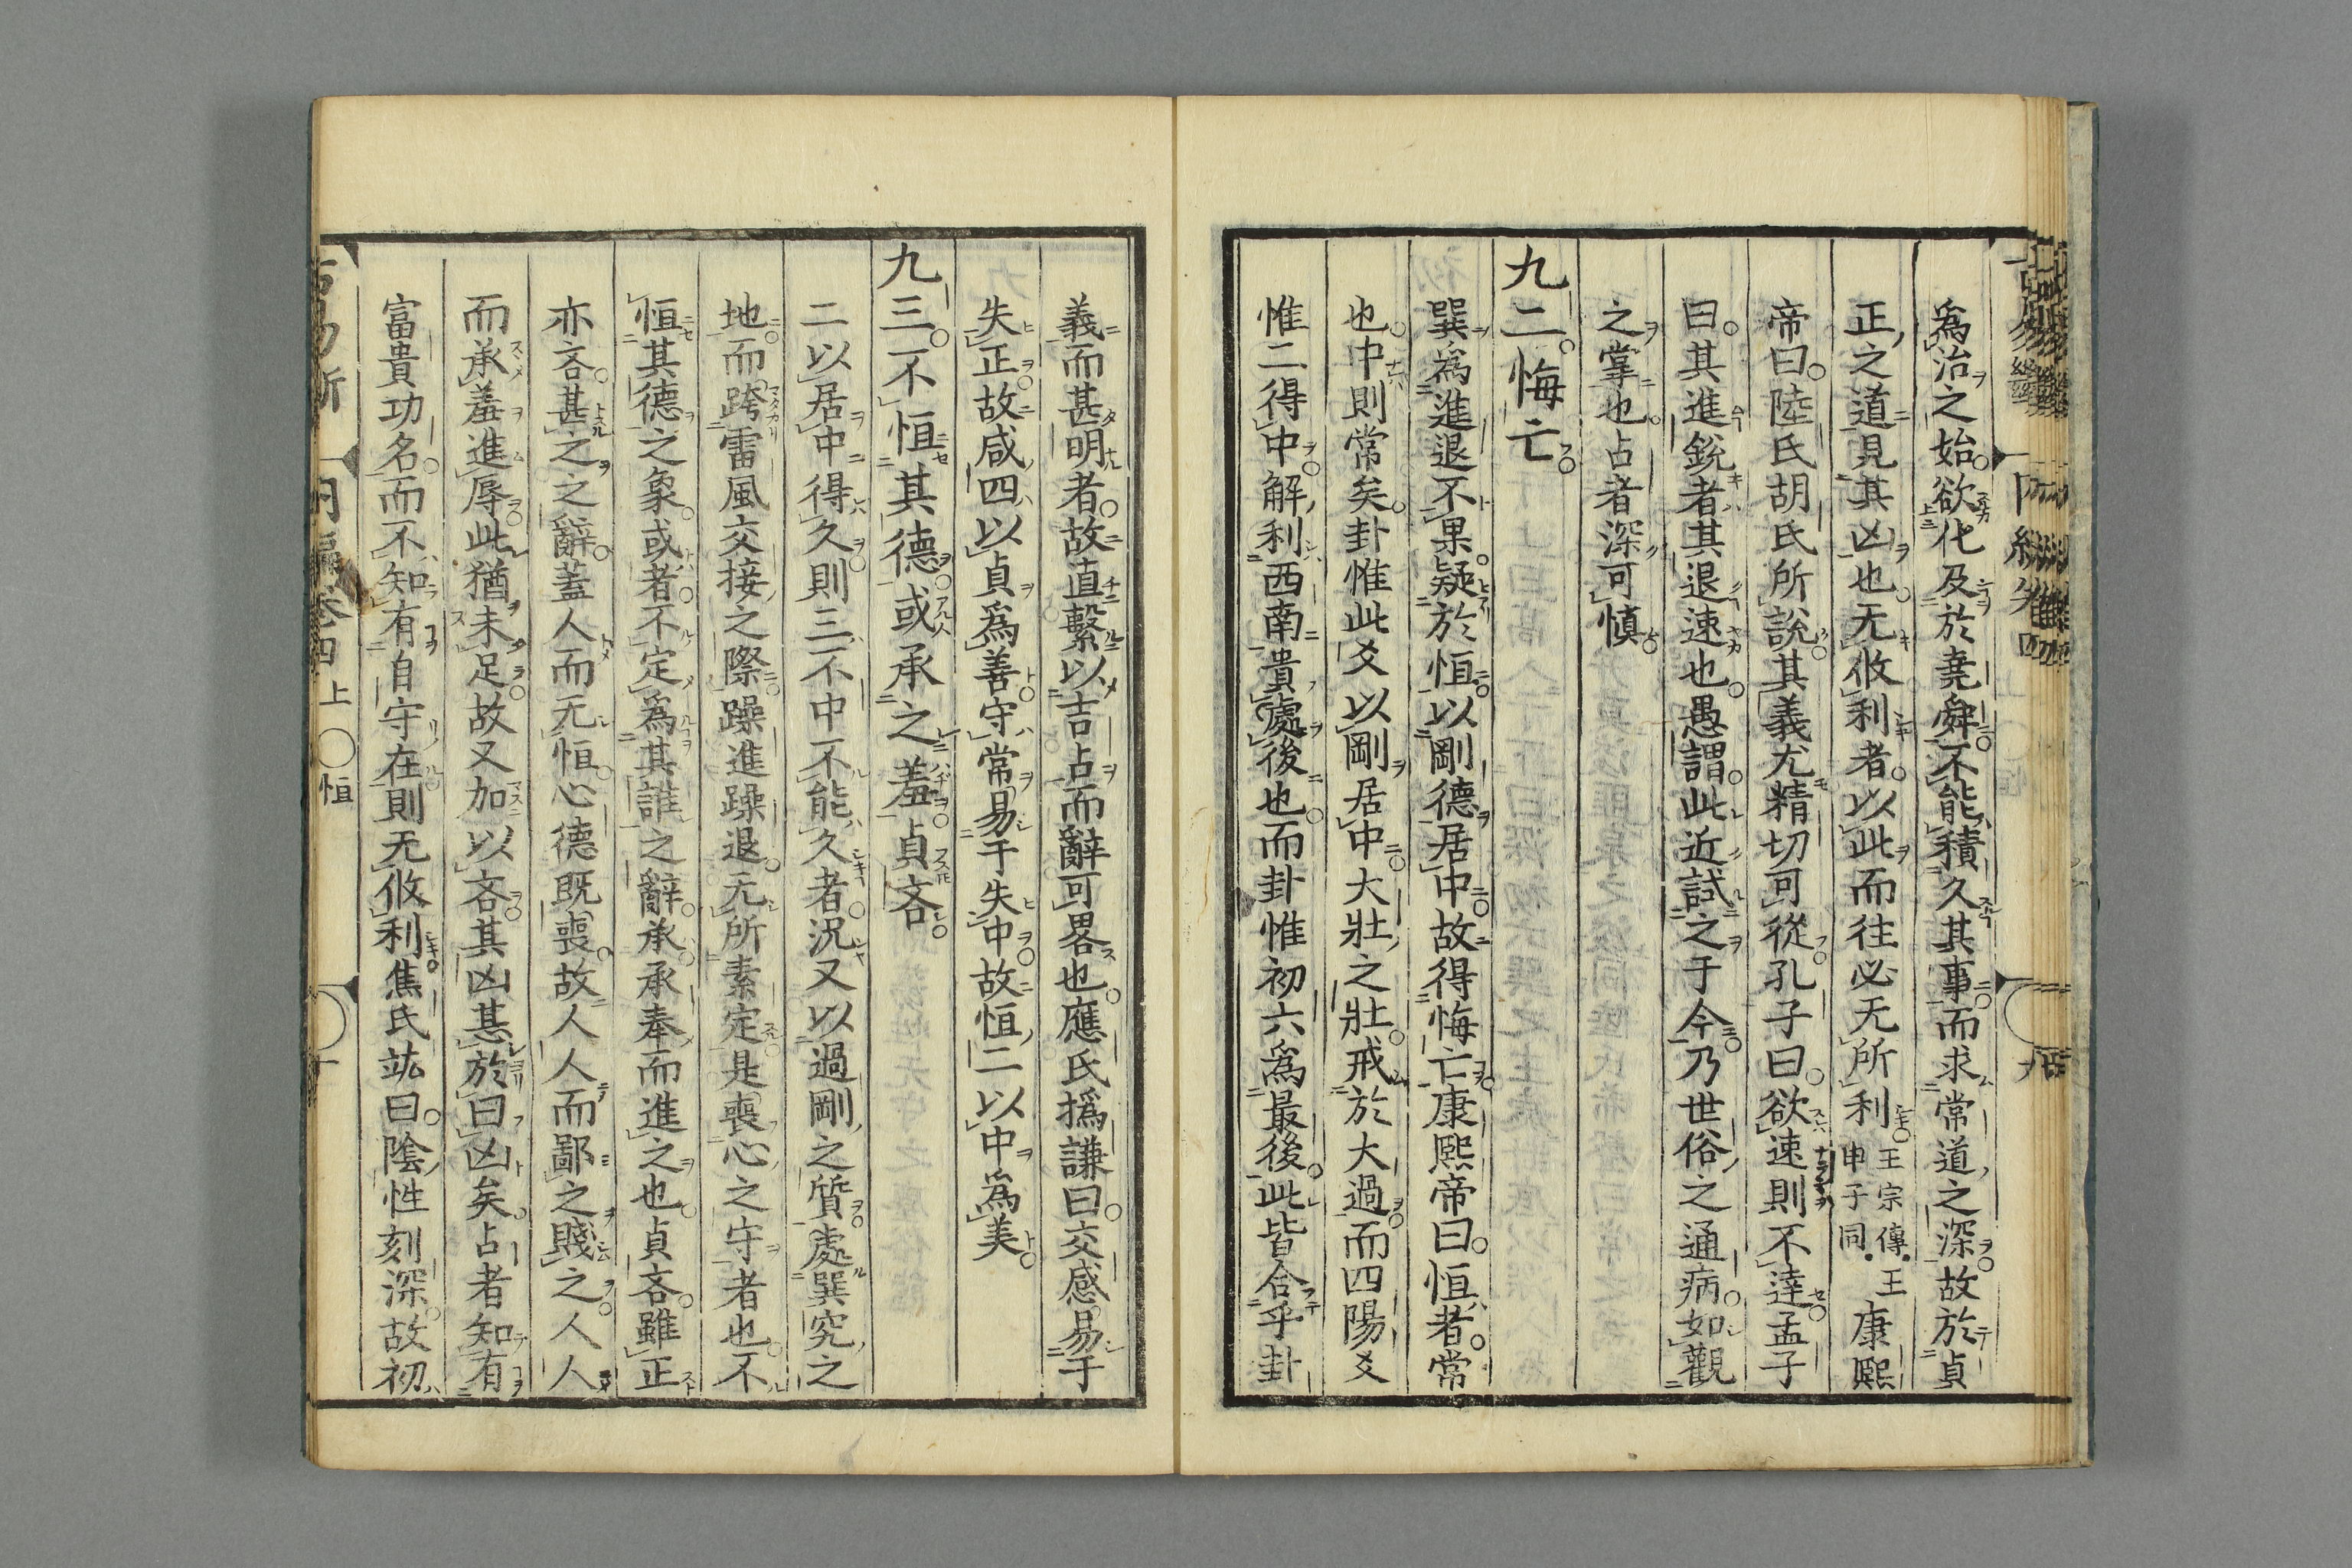 爲治之始欲化及於堯舜不能積久其事而求常道之深故於貞
正之道見其凶也无攸利者以此而往必无所利王宗傳王申子同康熙
帝曰陸氏胡氏所説其義尤精切可從孔子曰欲速則不達孟子
曰其進鋭者其退速也愚謂此近試之于今乃世俗之通病如觀
之掌也占者深可愼
九二悔亡
巽爲進退不果疑於恒以剛德居中故得悔亡康熙帝曰恒者常
也中則常矣卦惟此爻以剛居中大壯之壯戒於大過而四陽爻
惟二得中解利西南貴處後也而卦惟初六爲最後此皆合乎卦
義而甚明者故直繫以吉占而辭可畧也應氏撝謙曰交感易于
失正故咸四以貞爲善守常易于失中故恒二以中爲美
九三不恒其德或承之羞貞吝
二以居中得久則三不中不能久者況又以過剛之質處巽究之
地而跨雷風交接之際躁進躁退无所素定是喪心之守者也不
恒其德之象或者不定爲其誰之辭承承奉而進之也貞吝雖正
亦吝甚之之辭蓋人而无恒心德既喪故人人而鄙之賤之人人
而承羞進辱此猶未足故又加以吝其凶甚於曰凶矣占者知有
富貴功名而不知有自守在則无攸利焦氏竑曰陰性刻深故初
卷四上
恒